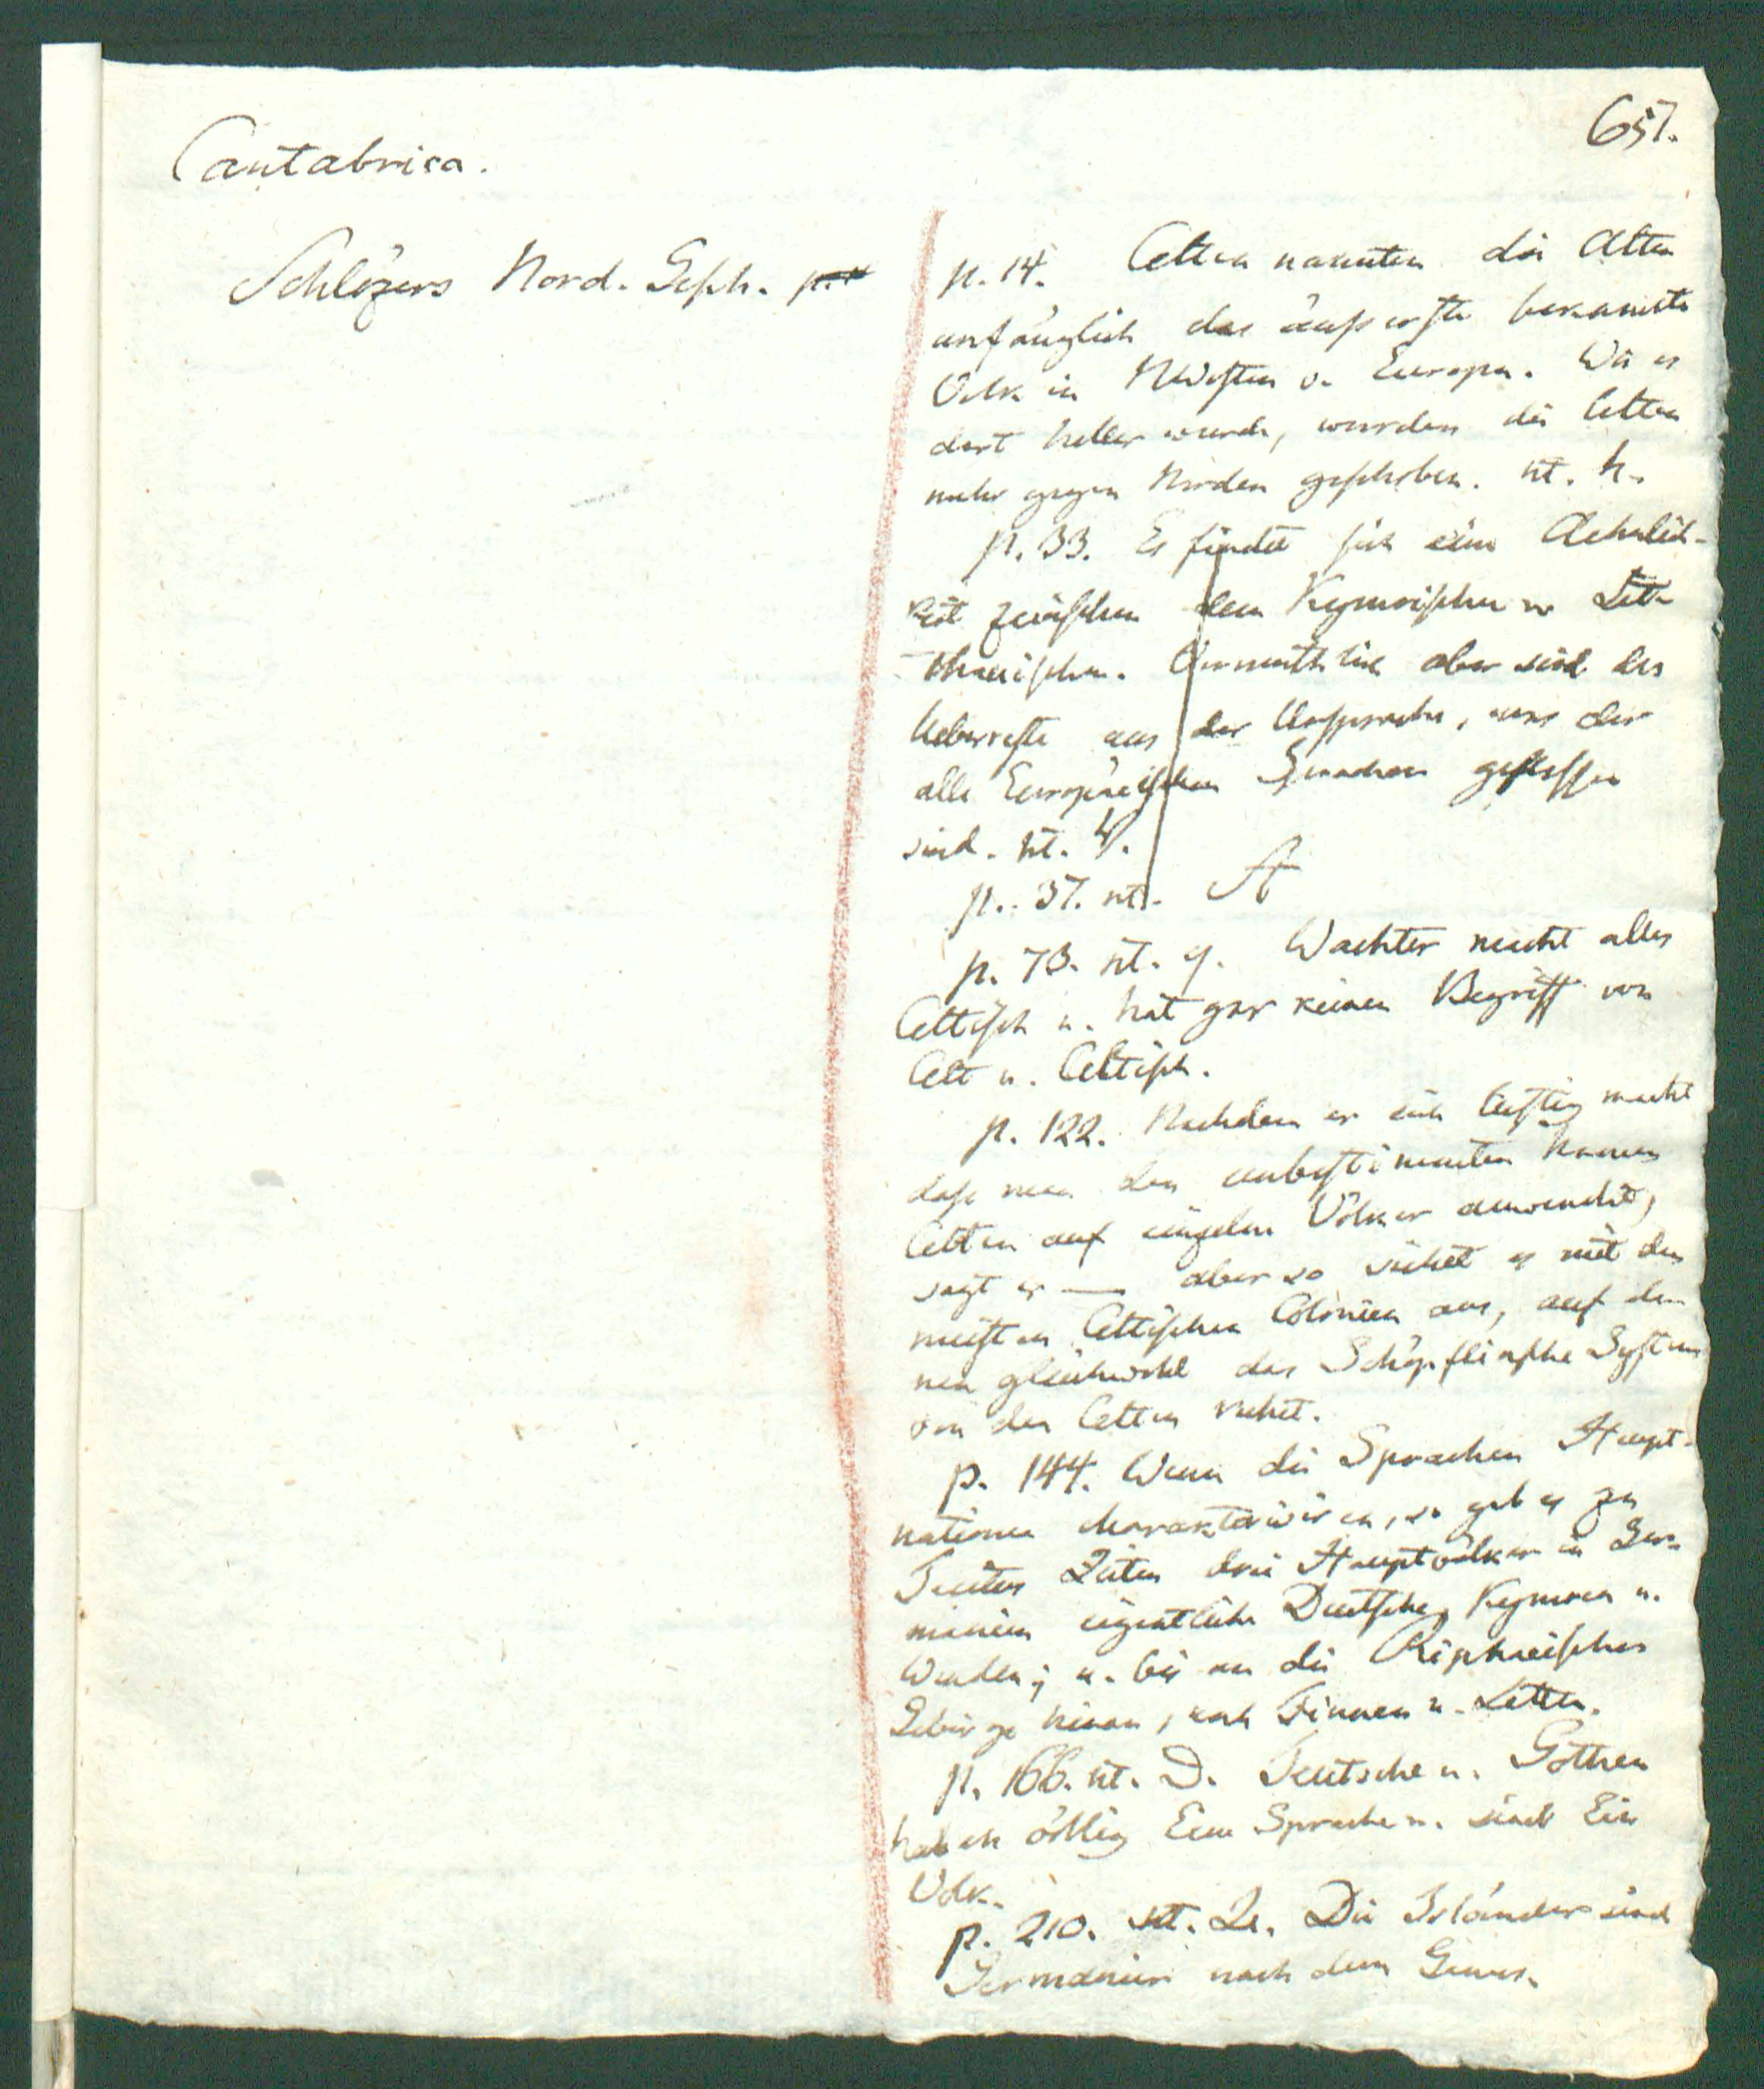 657.
Cantabrica.
Schlözers Nord. Gesch.
p. 14. Celten nannten die Alten
anfänglich das äusserste bekannte
Volk in NWesten v. Europa. Wie es
dort heller wurde, wurden die Celten
mehr gegen Norden geschoben. nt. h.
p. 33. Es findet sich eine Aehnlich-
keit zwischen dem Kymrischen u. Lit-
thauischen. Vermuthlich aber sind dies
Ueberreste aus der Ursprache, aus der
alle Europäischen Sprachen geflossen
sind. nt.
p. 37. nt. A
p. 73. nt. q. Wachter macht alles
Celtisch u. hat gar keinen Begriff von
Celt u. Celtisch.
p. 122. Nachdem er sich lustig macht
dass man den unbestimmten Namen
Celten auf einzelne Völker anwendet,
sagt er — aber so siehet es mit den
meisten Celtischen Colonien aus, auf de-
nen gleichwohl das Schöpflinsche System
von den Celten ruhet.
p. 144. Wenn die Sprachen Haupt-
nationen charakterisiren, so gab es zu
Zeiten drei Hauptvölker in Ger-
manien eigentliche Deutsche, Kymren u.
Wenden; u. bis an die Riphaeischen
Gebirge hinan, noch Finnen u. Letten.
p. 166. nt. D. Teutsche u. Gothen
haben völlig Eine Sprache u. sind Ein
Volk.
p. 210. nt. Die Isländer sind
Germanier nach dem